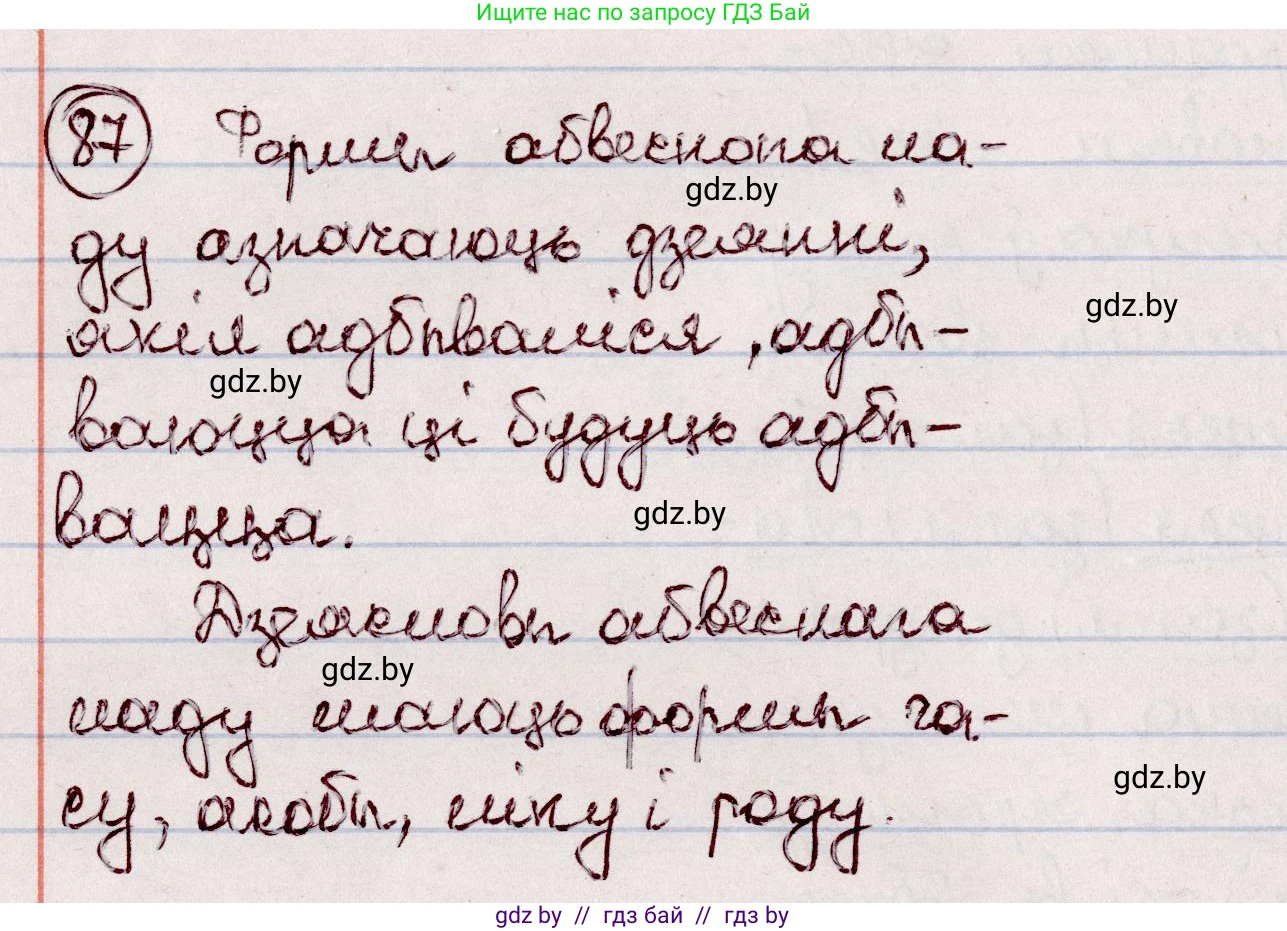 Ищите нас по запросу ГДЗ Бай
87 Формы абвеснага ла-
gdz.by
ду азначаюць дзеянні,
якія адбываліся, адбы-
gdz.by
gdz.by
ваюцца ці будуць адбы-
вацца.
gdz.by
Дзеясловы абвеснага
gdz.by
ладу маюць формы ча-
gdz.by
су, асобы, ліку і роду.
gdz by // гдз бай // гдз by